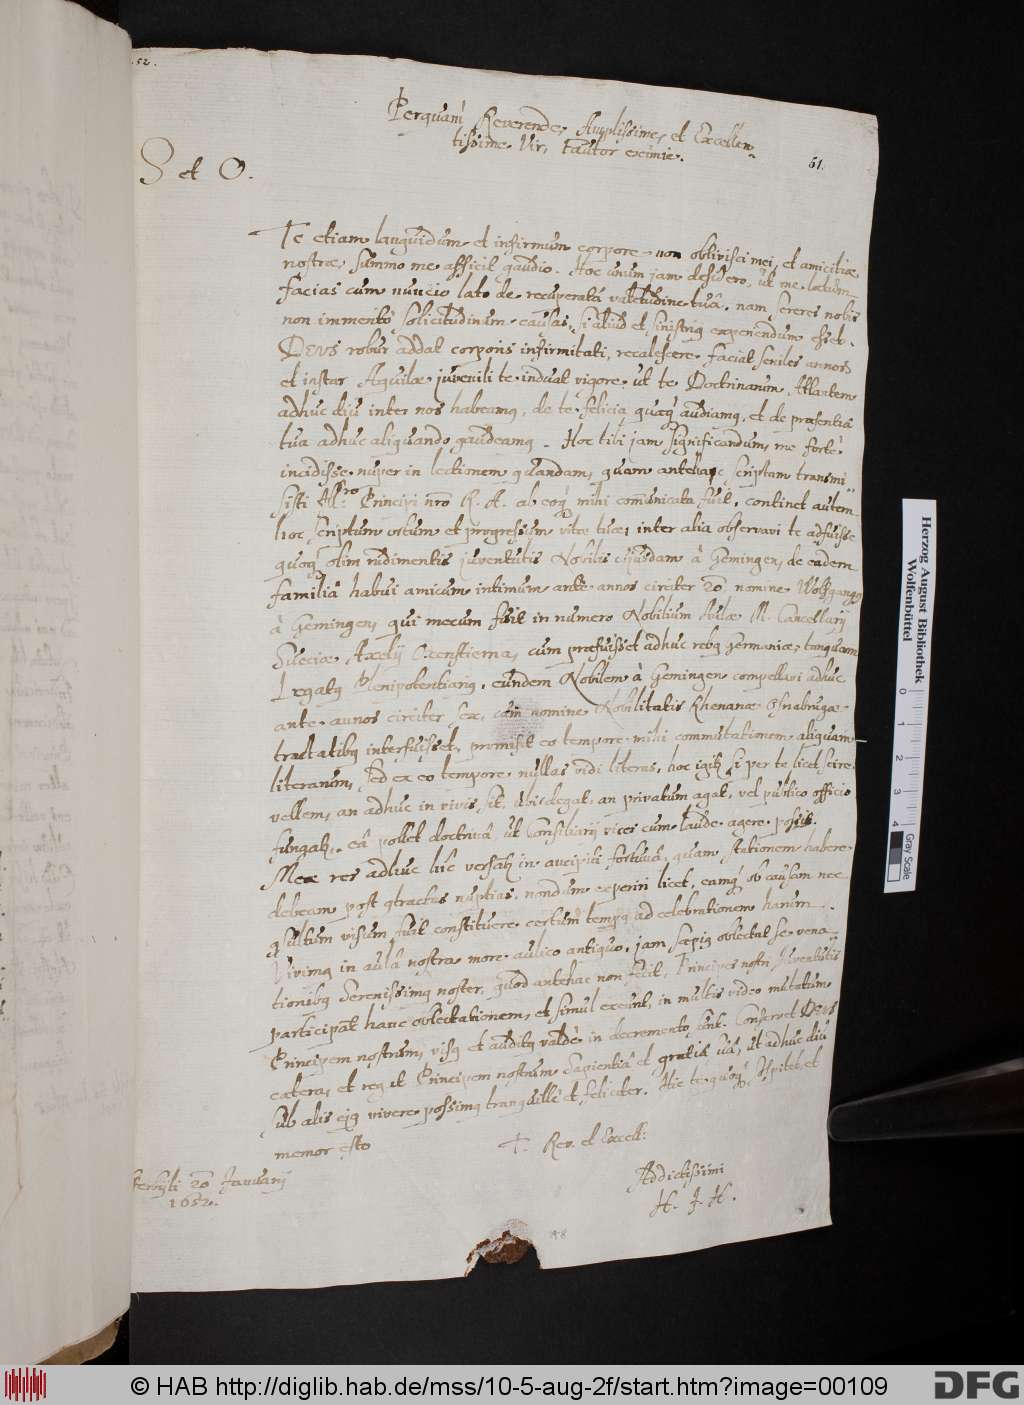 52.
Perquam Reverende, Amplissime, et Excellen-
tissime Vir, Fautor eximie.
51.
S et O.
Te etiam languidum et infirmum corpore non oblivisci mei, et amicitiæ
nostræ, summo me afficit gaudio. Hoc unum jam desidero, ut me lætum
facias cum nuncio læto de recuperatâ valetudine tuâ, nam sereres nobis
non immeritò solicitudinum causas, si aliud et sinistrig experiendum esset.
DEUS robur addat corporis infirmitati, recalescere faciat seniles annos
et instar Aquilæ juvenili te induat vigore, ut te Doctrinarum Atlantem
adhuc diu inter nos habeamq, de te felicia quæq audiamq, et de præsentiâ
tua adhuc aliquando gaudeamq. Hoc tibi jam significandum, me fortè
incidisse nuper in lectionem quandam, quam antehac scriptam transmi-
sisti Principi nro R. A. ab eoq mihi comunicata fuit, continet autem
hoc scriptum ortum et progressum vitæ tuæ, inter alia observavi te adfuisse
quoq olim rudimentis juventutis Nobilis cujusdam à Gemingen, de eadem
familiâ habui amicum intimum ante annos circiter 20 nomine Wolfgangq
à Gemingen, qui mecum fuit in numero Nobilium Aulæ M. Cancellarij
Sueciæ Axelij Oxenstierna, cum præfuisset adhuc rebq Germaniæ, tanquam
Legatq Plenipotentiariq, eundem Nobilem à Gemingen compellavi adhuc
ante annos circiter sex, cum nomine Nobilitatis Rhenanæ Osnabrugæ
tractatibq interfuisset, promisit eo tempore mihi commutationem aliquam
literarum, sed ex eo tempore nullas vidi literas, hoc igit si per te licet scire
vellem, an adhuc in vivis sit, ubi degat, an privatum agat, vel publico officio
fungat, eâ pollet doctrinâ, ut Consiliarij vices cum laude agere possit.
Meæ res adhuc hîc versat in ancipiti fortunâ, quam stationem habere
debeam post contractas nuptias, nondum experiri licet, eamq ob causam nec
consultum visum fuit constituere certum tempq ad celebrationem harum.
Vivimq in aulâ nostra more aulico antiquo, jam sæpiq oblectat se vena-
tionibq Serenissimq noster, quod antehac non fecit, Principes nostri Juventutis
participant hanc oblectationem, et simul exeunt, in multis video mutatum
Principem nostrum, visq et auditq valdè in decremento sunt. Conservet DEUS
cætera, et regat Principem nostrum Sapientiâ et gratiâ suâ, ut adhuc diu
sub alis ejq vivere possimq tranquillè et feliciter. Hic te quoq sospitet, et
memor esto
T. Rev. et Excell:
Addictissimi
H. J. H.
20 Januarij
1652.
Herzog August Bibliothek
Wolfenbüttel
0 1 2 3 4
Gray Scale
© HAB http://diglib.hab.de/mss/10-5-aug-2f/start.htm?image=00109
DFG